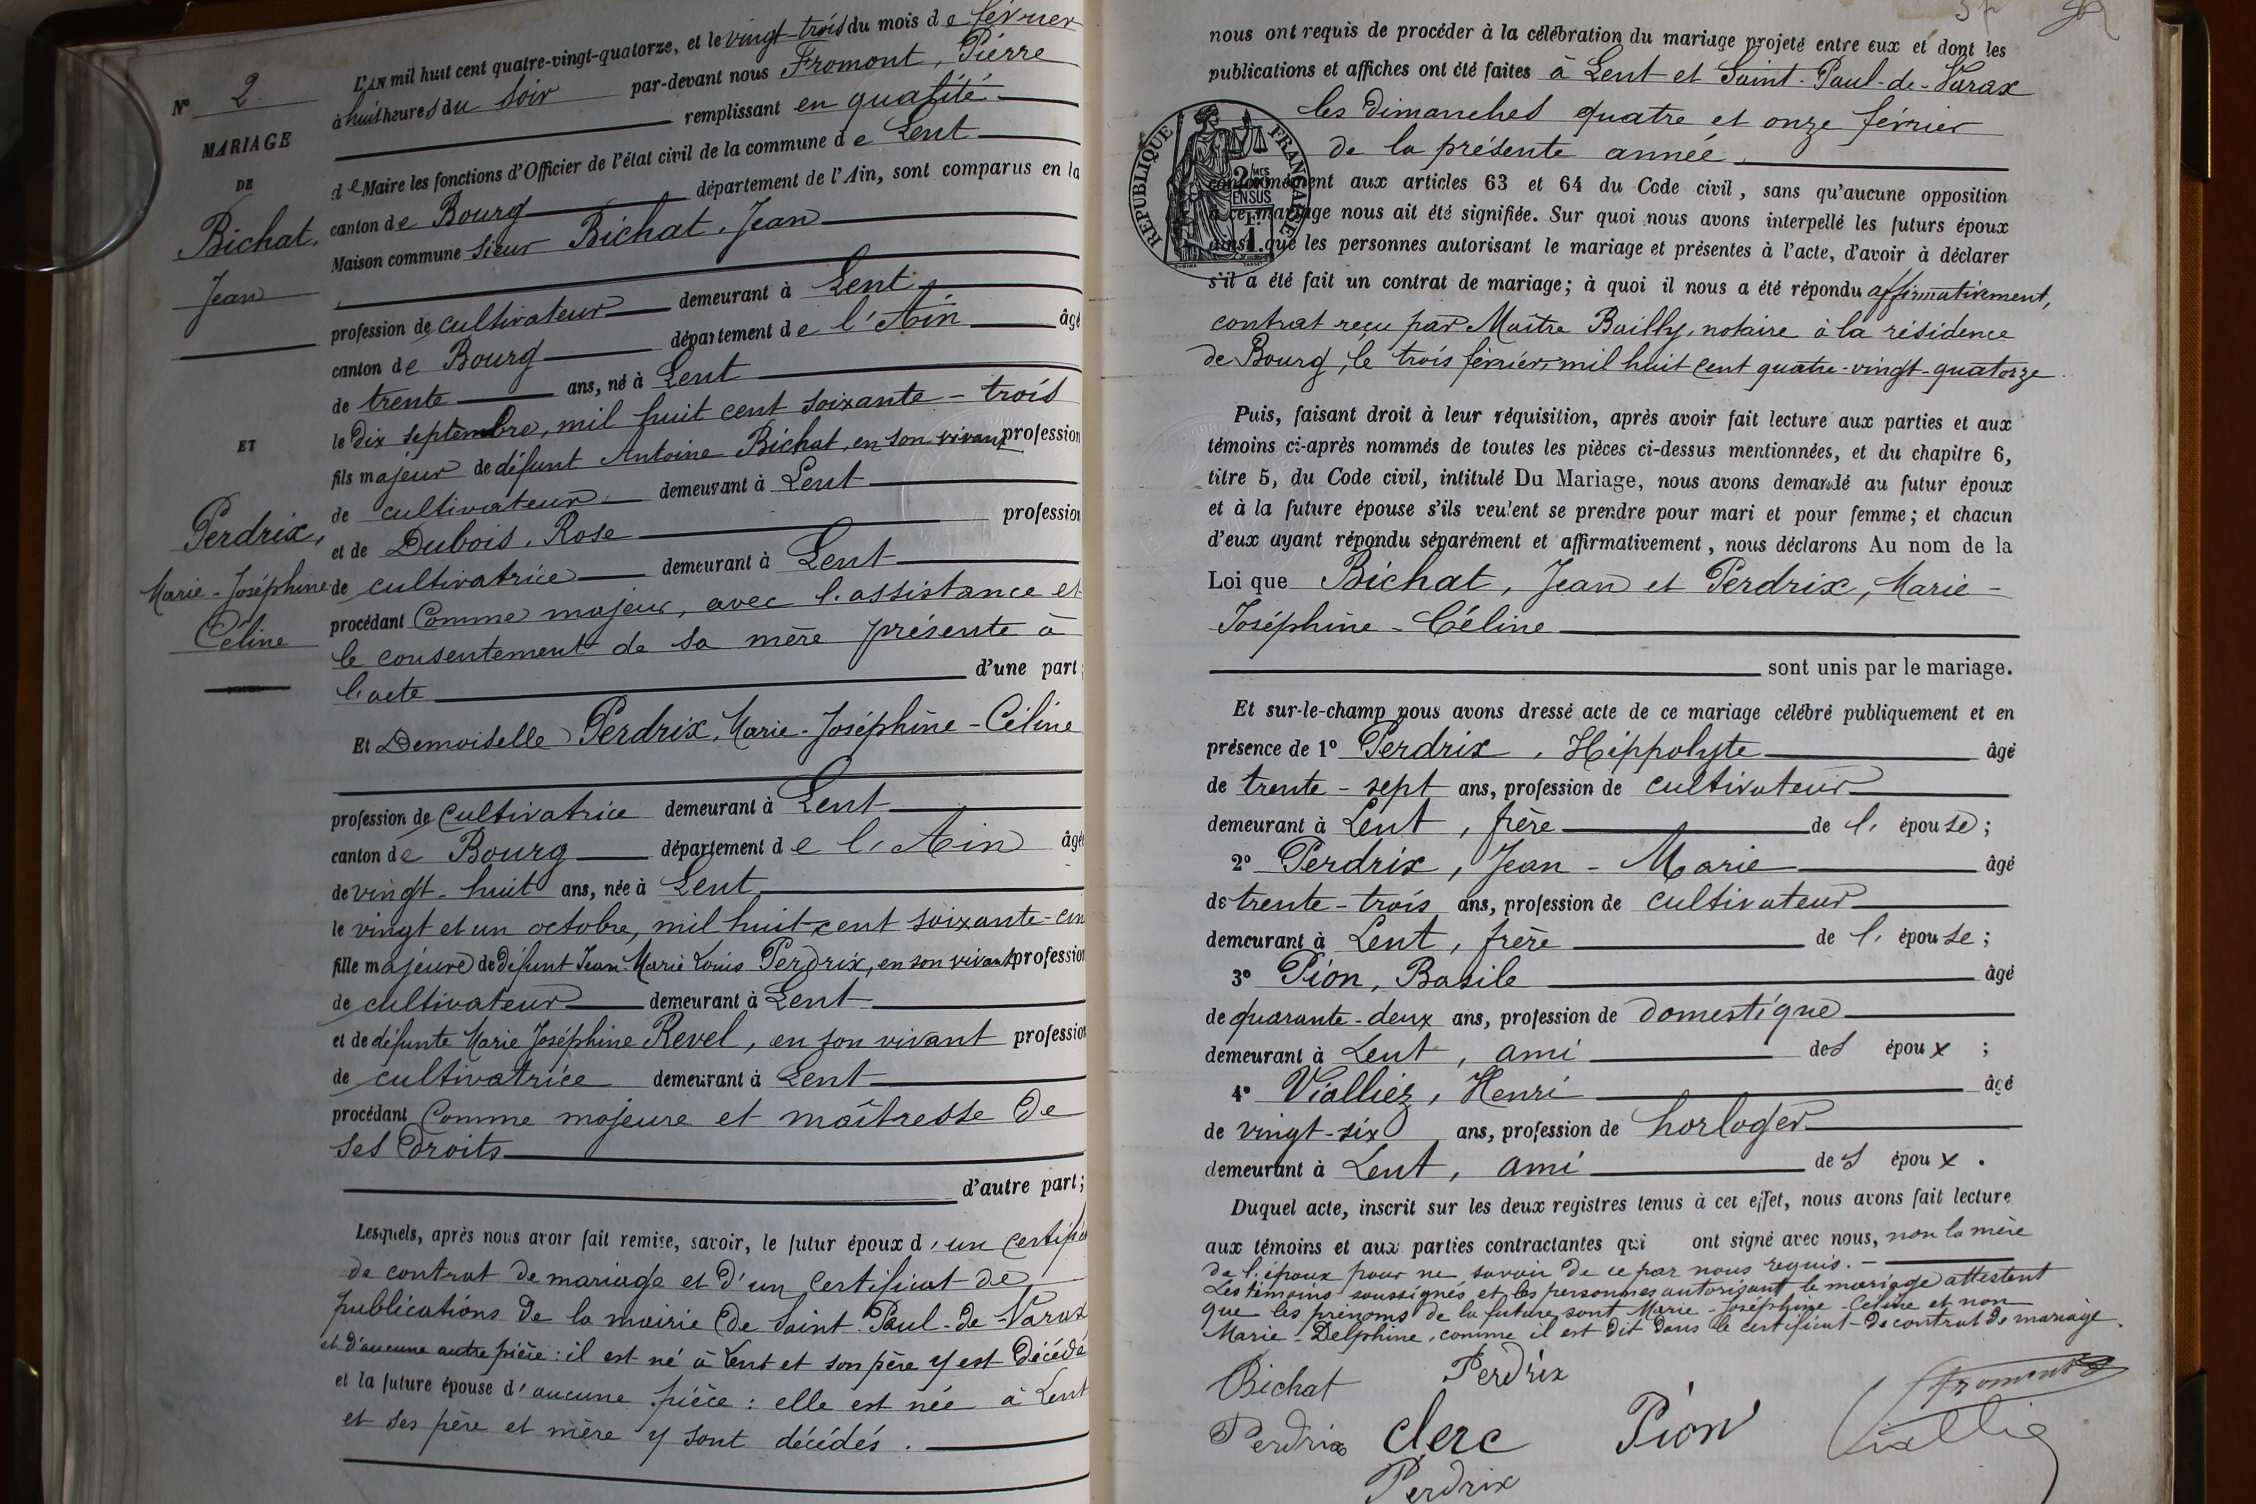 N° 2
MARIAGE
DE
Bichat,
Jean
ET
Perdrix,
Marie-Joséphine
Céline
L'AN mil huit cent quatre-vingt-quatorze, et le vingt-trois du mois de février
à huit heures du soir par-devant nous Fromont, Pierre
remplissant en qualité
de Maire les fonctions d'Officier de l'état civil de la commune de Lent
canton de Bourg département de l'Ain, sont comparus en la
Maison commune sieur Bichat, Jean
profession de cultivateur demeurant à Lent
canton de Bourg département de l'Ain âgé
de trente ans, né à Lent
le dix septembre, mil huit cent soixante-trois
fils majeur de défunt Antoine Bichat, en son vivant profession
de cultivateur demeurant à Lent
et de Dubois, Rose profession
de cultivatrice demeurant à Lent
procédant comme majeur, avec l'assistance et
le consentement de sa mère présente à
l'acte d'une part;
Et Demoiselle Perdrix, Marie-Joséphine-Céline
profession de cultivatrice demeurant à Lent
canton de Bourg département de l'Ain âgé
de vingt-huit ans, née à Lent
le vingt et un octobre, mil huit cent soixante-cin
fille majeure de défunt Jean-Marie Louis Perdrix, en son vivant profession
de cultivateur demeurant à Lent
et de défunte Marie Joséphine Revel, en son vivant profession
de cultivatrice demeurant à Lent
procédant comme majeure et maîtresse de
ses droits
d'autre part;
Lesquels, après nous avoir fait remise, savoir, le futur époux d'un certific
de contrat de mariage et d'un certificat de
publications de la mairie de Saint-Paul-de-Varax
et d'aucune autre pièce : il est né à Lent et son père y est décédé
et la future épouse d'aucune pièce : elle est née à Lent
et ses père et mère y sont décédés.
nous ont requis de procéder à la célébration du mariage projeté entre eux et dont les
publications et affiches ont été faites à Lent et Saint-Paul-de-Varax
les dimanches quatre et onze février
de la présente année,
RÉPUBLIQUE FRANÇAISE
2/10MES
EN SUS
1F.
conformément aux articles 63 et 64 du Code civil, sans qu'aucune opposition
à ce mariage nous ait été signifiée. Sur quoi nous avons interpellé les futurs époux
ainsi que les personnes autorisant le mariage et présentes à l'acte, d'avoir à déclarer
s'il a été fait un contrat de mariage; à quoi il nous a été répondu affirmativement,
contrat reçu par Maître Bailly, notaire à la résidence
de Bourg, le trois février, mil huit cent quatre-vingt-quatorze.
Puis, faisant droit à leur réquisition, après avoir fait lecture aux parties et aux
témoins ci-après nommés de toutes les pièces ci-dessus mentionnées, et du chapitre 6,
titre 5, du Code civil, intitulé Du Mariage, nous avons demandé au futur époux
et à la future épouse s'ils veulent se prendre pour mari et pour femme; et chacun
d'eux ayant répondu séparément et affirmativement, nous déclarons Au nom de la
Loi que Bichat, Jean et Perdrix, Marie-
Joséphine-Céline
sont unis par le mariage.
Et sur-le-champ nous avons dressé acte de ce mariage célébré publiquement et en
présence de 1° Perdrix, Hippolyte âgé
de trente-sept ans, profession de cultivateur
demeurant à Lent, frère de l'épouse;
2° Perdrix, Jean-Marie âgé
de trente-trois ans, profession de cultivateur
demeurant à Lent, frère de l'épouse;
3° Pion, Basile âgé
de quarante-deux ans, profession de domestique
demeurant à Lent, ami des époux;
4° Vialliez, Henri âgé
de vingt-six ans, profession de horloger
demeurant à Lent, ami des époux.
Duquel acte, inscrit sur les deux registres tenus à cet effet, nous avons fait lecture
aux témoins et aux parties contractantes qui ont signé avec nous, non la mère
de l'époux pour ne savoir de ce par nous requis.
Les témoins soussignés et les personnes autorisant le mariage attestent
que les prénoms de la future sont Marie-Joséphine-Céline et non
Marie-Delphine, comme il est dit dans le certificat de contrat de mariage.
Bichat Perdrix Fromont
Perdrix Clerc Pion
Perdrix